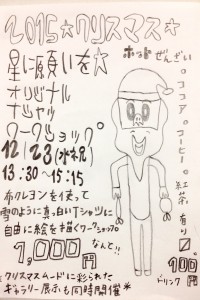 2015☆クリスマス☆
星に願いを☆
オリジナル
ナシャツ
ワークショップ
12/23(水祝)
13:30〜15:15
布クレヨンを使って
雪のように真っ白いTシャツに
自由に絵を描くワークショップ
なんと!!
1,000円
*クリスマスムードに彩られた
ギャラリー展示も同時開催*
ホット ぜんざい
。ココア。コーヒー。
紅茶 有り
100円
ドリンク